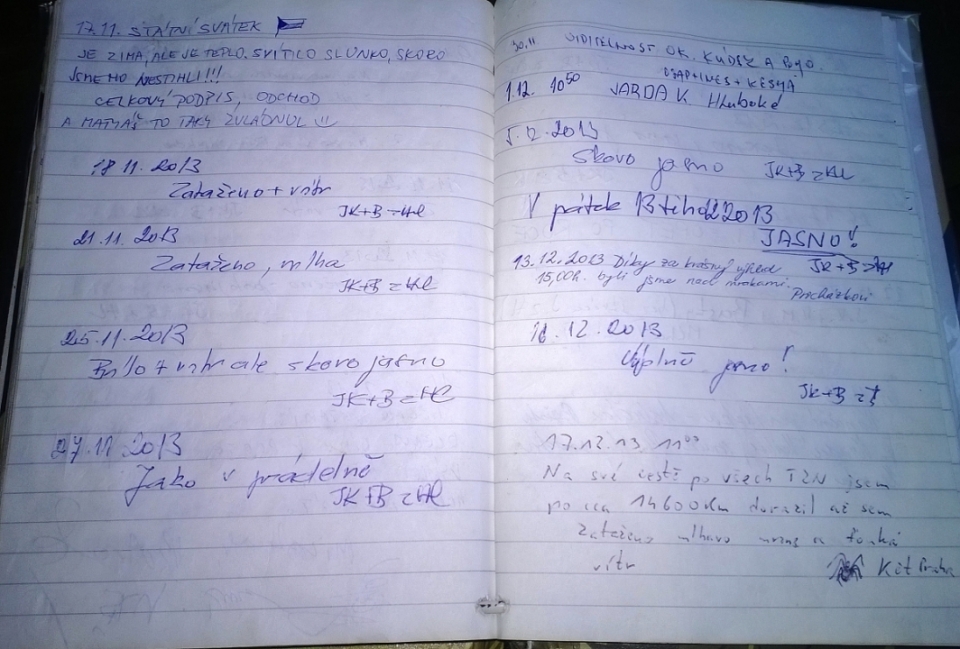 17.11. STÁTNÍ SVÁTEK
JE ZIMA, ALE JE TEPLO. SVÍTILO SLUNKO, SKORO
JSME HO NESTIHLI!!!
CELKOVÝ PODPIS, ODCHOD
A MATYÁŠ TO TAKY ZVLÁDNUL
18 11. 2013
Zataženo + vítr
JK+B
21.11. 2013
Zataženo, mlha
JK+B
25.11.2013
Bílo + vítr ale skoro jasno
JK+B
27.11 2013
Jako v prádelně
JK+B
30.11 VIDITELNOST OK.
1.12. 10⁵⁰ JARDA K. Hluboké
5.12. 2013
Skoro jasno JK+B
V pátek 13tého 2013
JASNO!
13.12.2013 Díky za krásný výhled JK+B
15,00h. byli jsme nad mrakami.
Procházkovi
16.12.2013
Úplně jasno!
JK+B
17.12.13 11⁰⁷
Na své cestě po všech TZN jsem
po cca 14600km dorazil až sem
zataženo mlhavo mrzne a fouká
vítr Praha